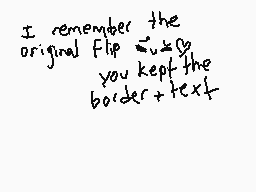 I remember the
original flip =u=♡
you kept the
border + text